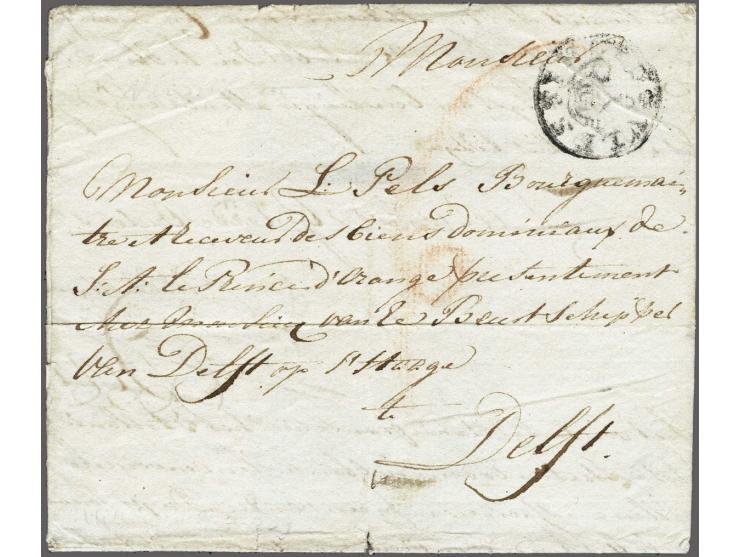 Monsieur
Monsieur L: Pels Bourguemai-
tre et receveur des biens dominiaux de
S: A: le Prince d'Orange presentement
chez van de Beurt Schipper
van Delft op s'Haage
te
Delft.